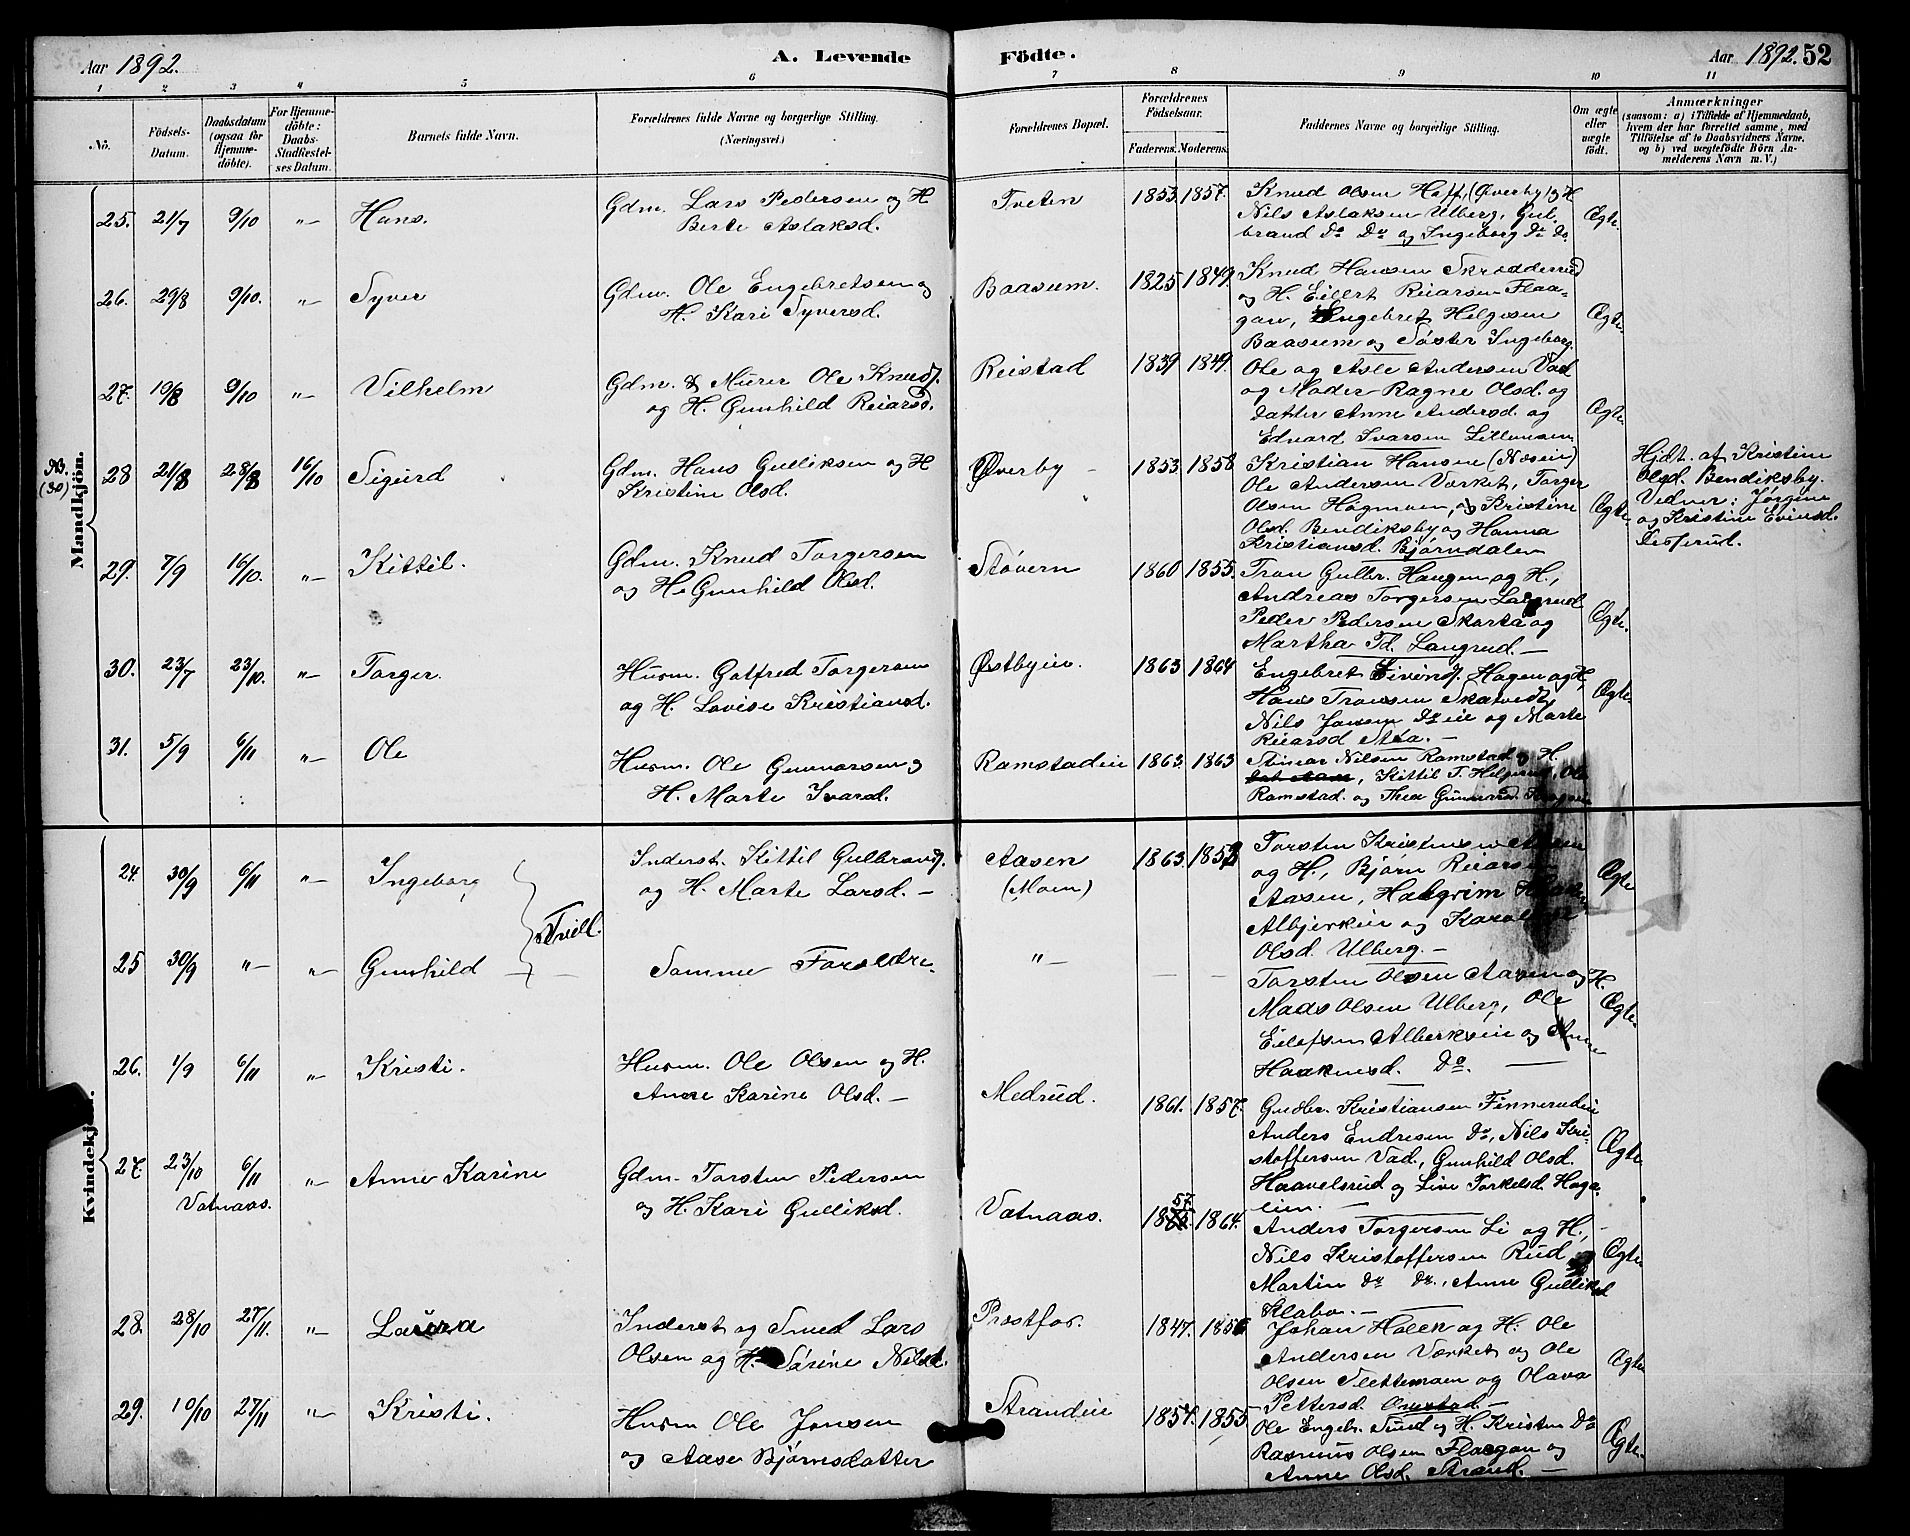 Aar 1892. A. Levende Födte. Aar 1892. 52
1 2 3 4 5 6 7 8 9 10 11
No. Födsels-Datum. Daabsdatum (ogsaa for Hjemmedöbte). For Hjemmedöbte: Daabs-Stadfæstelses Datum. Barnets fulde Navn. Forældrenes fulde Navne og borgerlige Stilling. (Næringsvei.) Forældrenes Bopæl. Forældrenes Födselsaar. Faderens. Moderens. Faddernes Navne og borgerlige Stilling. Om ægte eller uægte födt. Anmærkninger (saasom: a) i Tilfælde af Hjemmedaab, hvem der har forrettet samme, med Tilföielse af to Daabsvidners Navne, og b) ved uægtefödte Börn Anmelderens Navn m. V.)
Mandkjön.
25. 21/7 9/10 „ Hans. Gdm. Lars Pedersen og H Tveten 1853 1857. Knud Olsen Hoff, (Øverby) og H
Berte Aslaksd. Nils Aslaksen Ulberg, Gul-
brand Do Do og Ingeborg Do Do Ægte.
26. 29/8 9/10. „ Syver Gdm. Ole Engebretsen og Baasum. 1825 1849. Knud Hansen Skrædderud
H. Kari Syversd. og H. Eilert Reiarsen Flaa-
gan, Engebret Helgesen Ægte.
Baasum og Søster Ingeborg.
27. 19/8 9/10 „ Vilhelm Gdm. & Murer Ole Knuds. Reistad 1839 1849. Ole og Asle Andersen Vad
og H. Gunhild Reiarsd. og Moder Ragne Olsd. og
Datter Anne Andersd. og Ægte
Edvard Ivarsen
NB. (30) 28 21/8 28/8 16/10 Sigurd Gdm. Hans Gulliksen og H Øverby 1853 1858 Kristian Hansen (Næsin) Hjdt. af Kristine
Kristine Olsd. Ole Andersen Værket, Torger Olsd. Bendiksby.
Olsen Hagmoen, og Kristine Ægte Vidner: Jørgine
Olsd. Bendiksby og Hanna og Kristine Evensd.
Kristiansd. Bjørndalen
29. 7/9 16/10. „ Kittil. Gdm. Knud Torgersen Støvern 1860 1855. Tron Gulbr. Haugen og H.,
og H. Gunhild Olsd. Andreas Torgersen Langrud
Peder Pedersen Skarta og Ægte.
Martha Td. Langrud.
30. 23/7 23/10. „ Torger. Husm. Gotfred Torgersen Østbyeie. 1863 1864 Engebret Eivinds. Hagen og H,
og H. Lovise Kristiansd. Hans Tronsen Skatvedt, Ægte
Nils Jonsen Do eie og Marte
Reiarsd Støa.
31. 5/9 6/11 „ Ole Husm. Ole Gunnarsen og Ramstadeie 1863. 1863 Steinar Nilsen Ramstad og H.
H. Marte Ivarsd. Kittil T. Helgerud, Ole
Ramstad. og Thea Gunnarsd.
Kvindekjön.
24. 30/9 6/11 „ Ingeborg Inderst. Kittil Gulbrands. Aasen 1863. 1852 Torsten Kristensen Aasen
og H. Marte Larsd. (Moen) og H., Bjørn Reiarsen Ægte
Tvill. Aasen, Halgrim
Albjerkeie og Karoline
Olsd. Ulberg.
25 30/9 „ „ Gunhild Samme Forældre. „ Torsten Olsen Aasen og H.
Mads Olsen Ulberg, Ole Ægte.
Eilefsen Alberkeie og Anne
Haakensd. Do.
26. 1/9 6/11 „ Kristi. Husm. Ole Olsen og H. Medrud. 1861. 1857. Gudbr. Kristiansen Finnerudeie
Anne Karine Olsd. Anders Endresen Do, Nils Kri-
stoffersen Vad, Gunhild Olsd. Ægte
Haavelsrud og Live Torkelsd. Haga-
eien.
27. 23/10 6/11 „ Anne Karine Gdm. Torsten Pedersen Vatnaas. 57 1864. Anders Torgersen Li og H.,
Vatnaas. og H. Kari Gulliksd. Nils Kristoffersen Rud og Ægte
Martin Do Do., Anne Gulliksd
Klabo.
28. 28/10 27/11. „ Laura Inderst og Smed Lars Præstfos. 1847. 1856 Johan Holen og H. Ole
Olsen og H. Sørine Nilsd. Andersen Værket og Ole
Olsen Slettemoen og Olava Ægte
Pettersd.
29. 10/10 27/11 „ Kristi. Husm Ole Jonsen Strandeie 1854. 1855 Ole Engebr. Sund og H. Kristen Do
og Aase Bjørnsdatter Rasmus Olsen Flaagan og Ægte.
Anne Olsd. Strand.